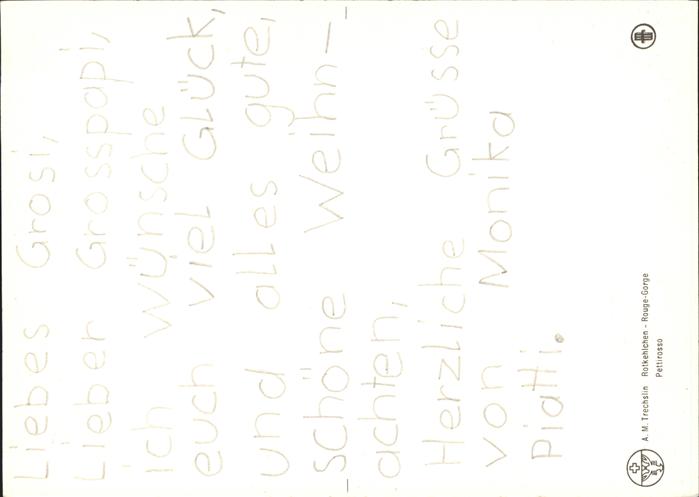 Liebes Grosi,
Lieber Grosspapi,
ich wünsche
euch viel GLÜCK,
und alles gute,
schöne Weihn—
achten,
Herzliche Grüsse
von Monika
Piatti.
A. M. Trechslin Rotkehlchen - Rouge-Gorge
Pettirosso